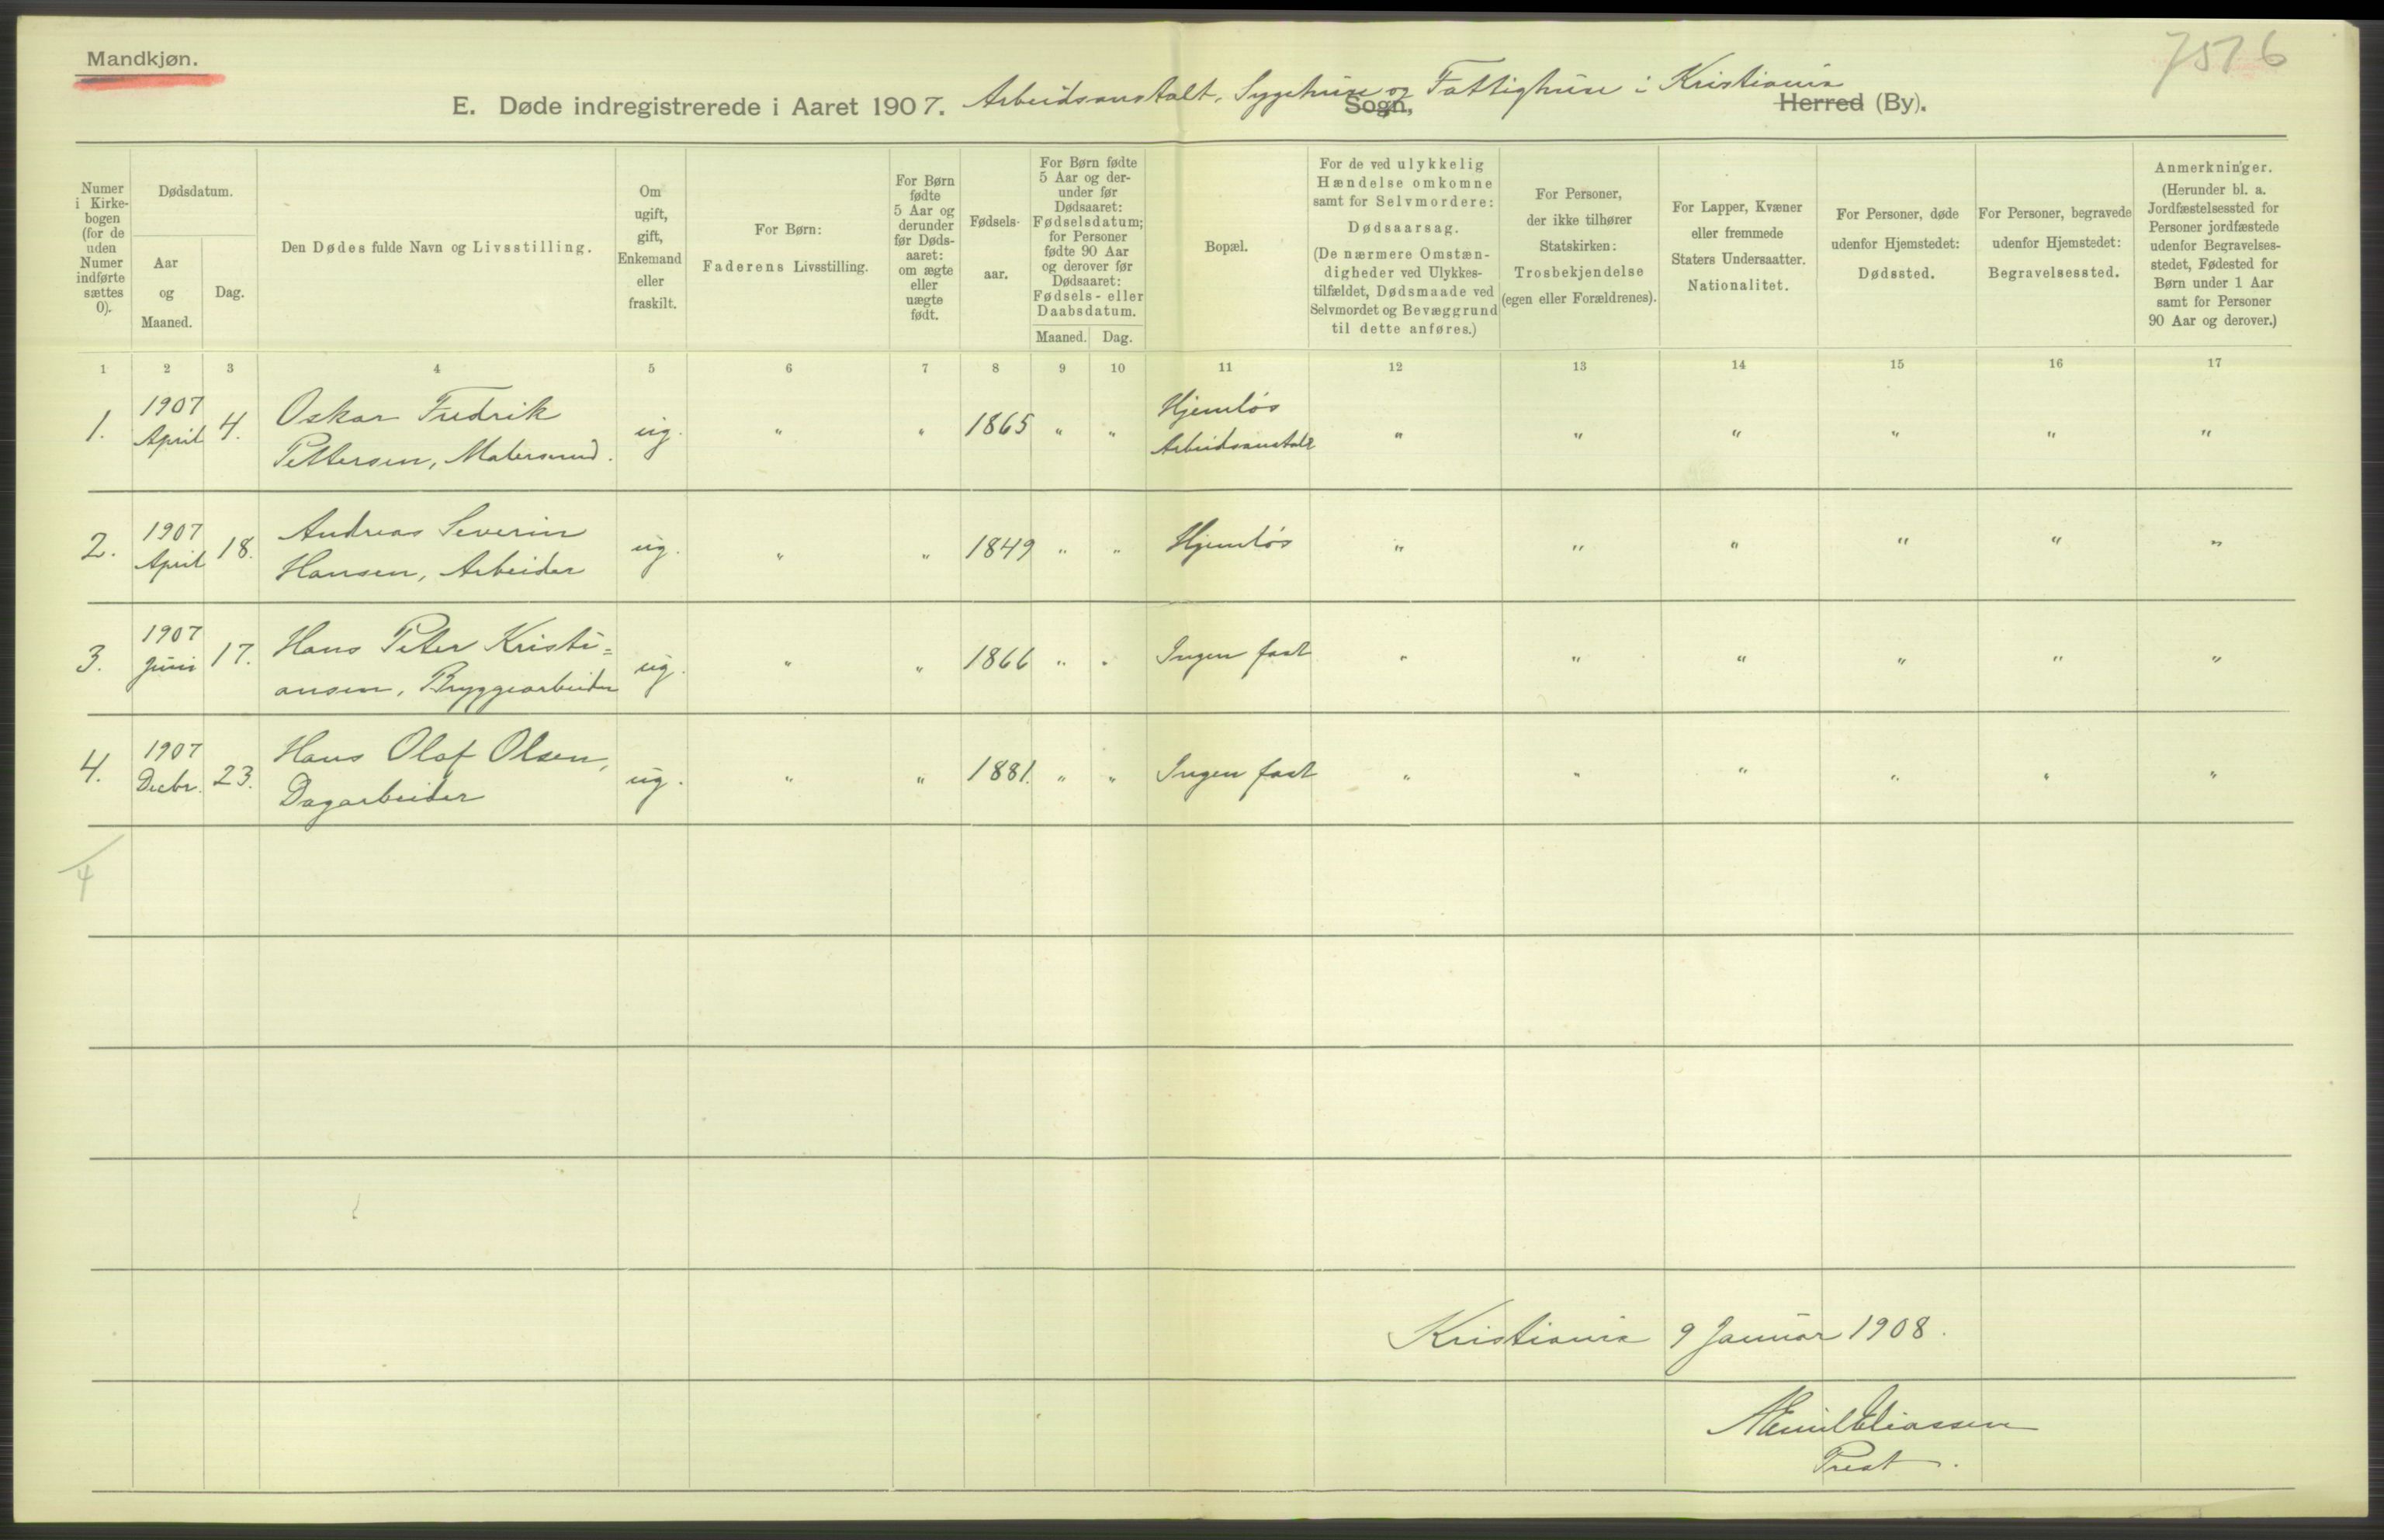 Mandkjøn.
7576
E. Døde indregistrerede i Aaret 1907. Arbeidsanstalt, Sygehuse og Fattighuse i Kristiania
Sogn, Herred (By).
Numer i Kirkebogen (for de uden Numer indførte sættes 0).
Dødsdatum.
Aar og Maaned.
Dag.
Den Dødes fulde Navn og Livsstilling.
Om ugift, gift, Enkemand eller fraskilt.
For Børn: Faderens Livsstilling.
For Børn fødte 5 Aar og derunder før Dødsaaret: om ægte eller uægte født.
Fødselsaar.
For Børn fødte 5 Aar og derunder før Dødsaaret: Fødselsdatum; for Personer fødte 90 Aar og derover før Dødsaaret: Fødsels- eller Daabsdatum.
Maaned. Dag.
Bopæl.
For de ved ulykkelig Hændelse omkomne samt for Selvmordere: Dødsaarsag. (De nærmere Omstændigheder ved Ulykkestilfældet, Dødsmaade ved Selvmordet og Bevæggrund til dette anføres.)
For Personer, der ikke tilhører Statskirken: Trosbekjendelse (egen eller Forældrenes).
For Lapper, Kvæner eller fremmede Staters Undersaatter. Nationalitet.
For Personer, døde udenfor Hjemstedet: Dødssted.
For Personer, begravede udenfor Hjemstedet: Begravelsessted.
Anmerkninger. (Herunder bl. a. Jordfæstelsessted for Personer jordfæstede udenfor Begravelsesstedet, Fødested for Børn under 1 Aar samt for Personer 90 Aar og derover.)
1 2 3 4 5 6 7 8 9 10 11 12 13 14 15 16 17
1. 1907 April 4. Oskar Fredrik Pettersen, Malersvend. ug. " " 1865 " " Hjemløs Arbeidsanstalt " " " " " "
2. 1907 April 18. Andreas Severin Hansen, Arbeider ug. " " 1849 " " Hjemløs " " " " " "
3. 1907 Juni 17. Hans Peter Kristi=ansen, Bryggearbeider ug. " " 1866 " " Ingen fast " " " " " "
4. 1907 Decbr. 23. Hans Olaf Olsen, Dagarbeider ug. " " 1881. " " Ingen fast " " " " " "
4
Kristiania 9 Januar 1908.
Emil Eliassen
Prest.